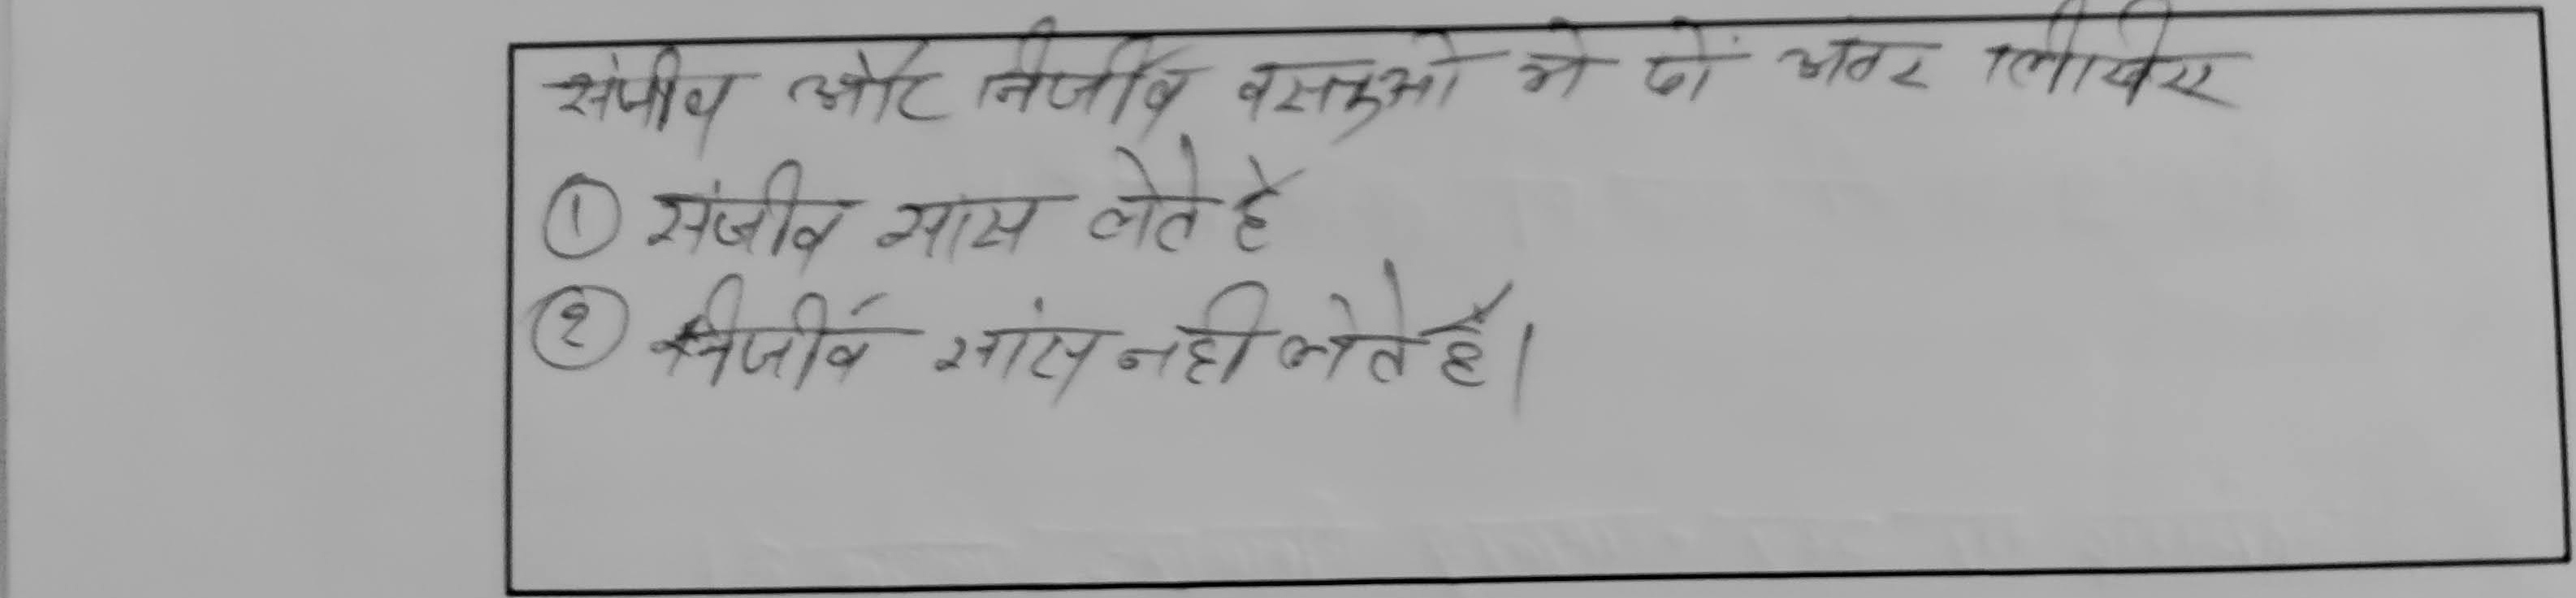 संजीव और निर्जीव वसतुओ मे दों अंतर लीखिए
① संजीव सास लेते है
② निर्जीव सांस नही लेते हैं।